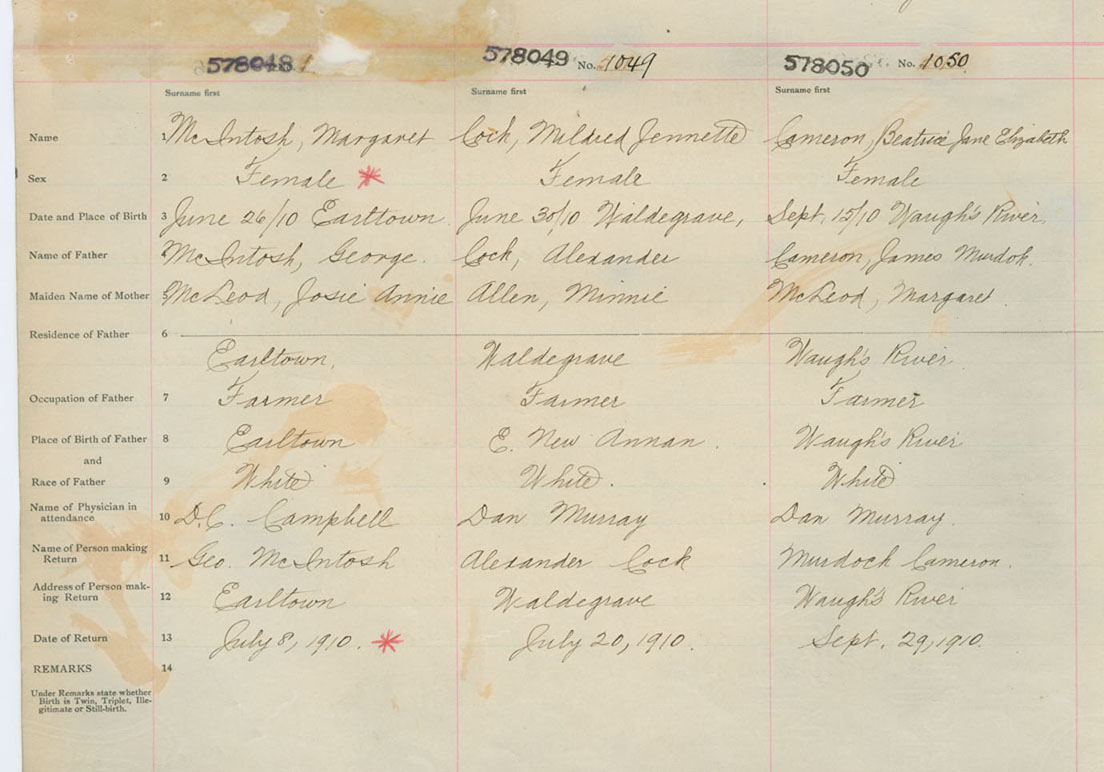 578048
578049 No. 1049
578050 No. 1050
Surname first Surname first Surname first
Name 1 McIntosh, Margaret Cock, Mildred Jennette Cameron, Beatrice Jane Elizabeth
Sex 2 Female * Female Female
Date and Place of Birth 3 June 26/10 Earltown. June 30/10 Waldegrave, Sept. 15/10 Waugh's River.
Name of Father McIntosh, George. Cock, Alexander Cameron, James Murdok.
Maiden Name of Mother 5 McLeod, Josie Annie Allen, Minnie McLeod, Margaret.
Residence of Father 6
Earltown. Waldegrave Waugh's River.
Occupation of Father 7 Farmer Farmer Farmer
Place of Birth of Father 8 Earltown E. New Annan. Waugh's River
and
Race of Father 9 White White. White
Name of Physician in
attendance 10 D.C. Campbell Dan Murray Dan Murray.
Name of Person making
Return 11 Geo. McIntosh Alexander Cock Murdoch Cameron.
Address of Person mak-
ing Return 12 Earltown Waldegrave Waugh's River
Date of Return 13 July 8, 1910. * July 20, 1910. Sept. 29, 1910.
REMARKS 14
Under Remarks state whether
Birth is Twin, Triplet, Ille-
gitimate or Still-birth.